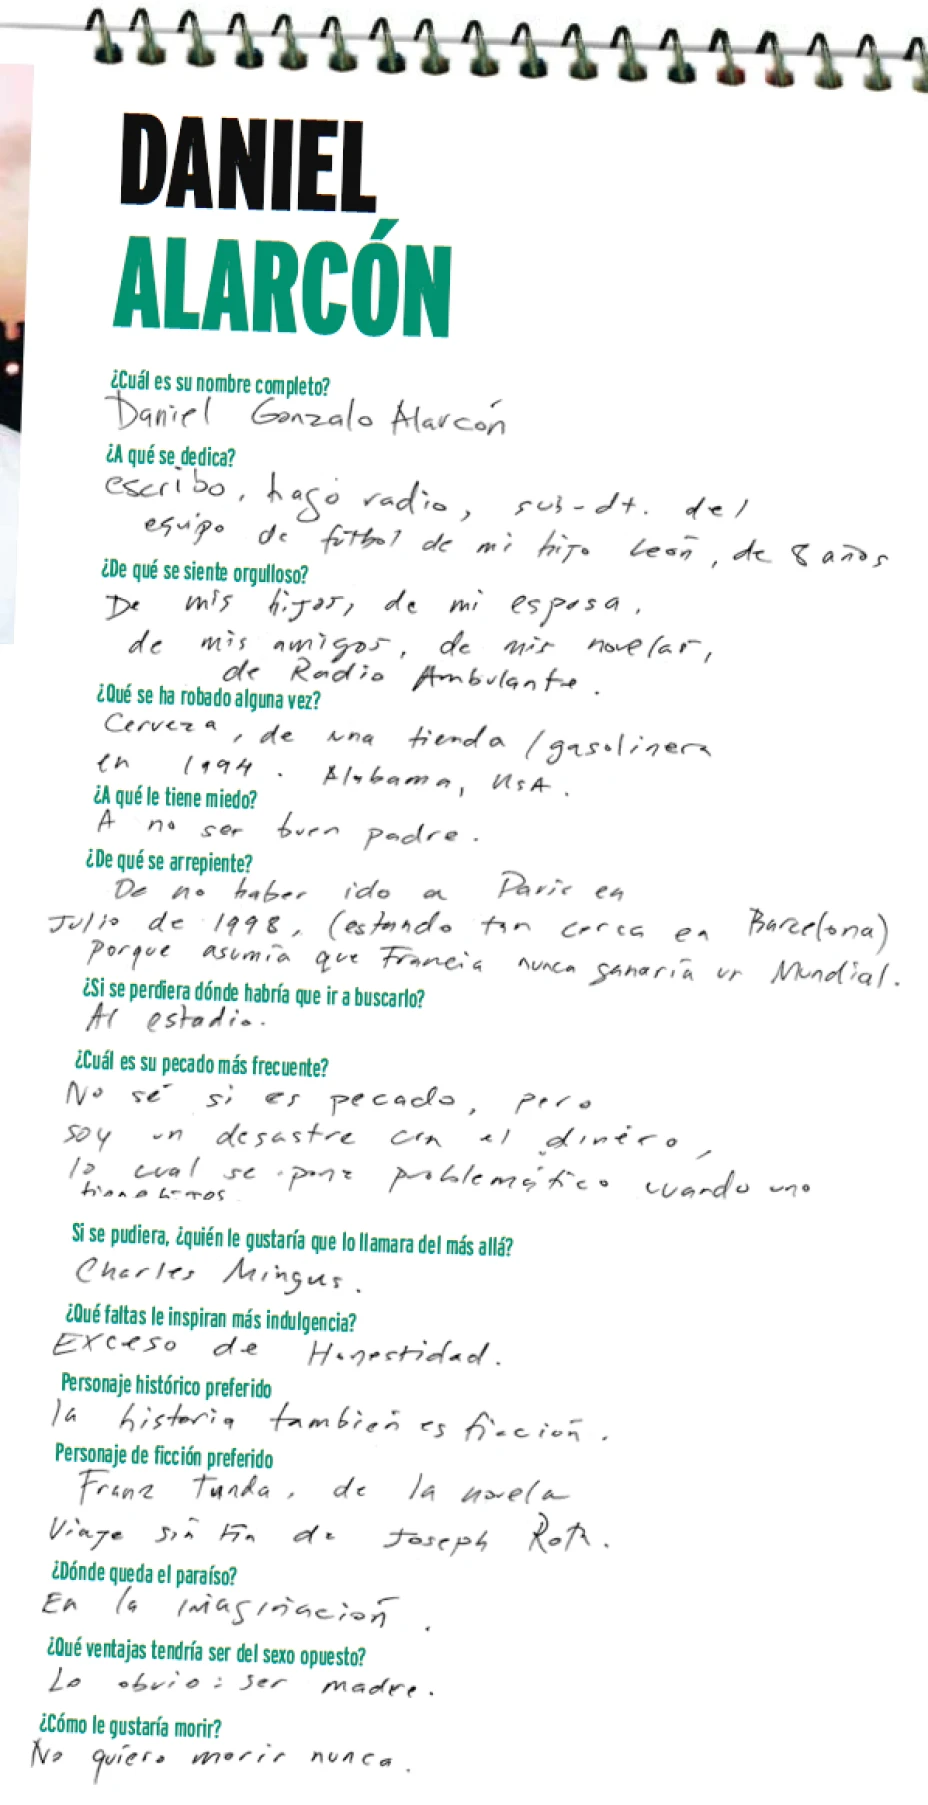 DANIEL
ALARCÓN
¿Cuál es su nombre completo?
Daniel Gonzalo Alarcón
¿A qué se dedica?
escribo, hago radio, sub-dt. del
equipo de fútbol de mi hijo León, de 8 años
¿De qué se siente orgulloso?
De mis hijos, de mi esposa,
de mis amigos, de mis novelas,
de Radio Ambulante.
¿Qué se ha robado alguna vez?
Cerveza, de una tienda/gasolinera
en 1994. Alabama, USA.
¿A qué le tiene miedo?
A no ser buen padre.
¿De qué se arrepiente?
De no haber ido a Paris en
Julio de 1998, (estando tan cerca en Barcelona)
Porque asumía que Francia nunca ganaría un Mundial.
¿Si se perdiera dónde habría que ir a buscarlo?
Al estadio.
¿Cuál es su pecado más frecuente?
No sé si es pecado, pero
soy un desastre con el dinero,
lo cual se pone problemático cuando uno
tiene hijos
Si se pudiera, ¿quién le gustaría que lo llamara del más allá?
Charles Mingus.
¿Qué faltas le inspiran más indulgencia?
Exceso de Honestidad.
Personaje histórico preferido
la historia también es ficción.
Personaje de ficción preferido
Franz Tunda, de la novela
Viaje sin fin de Joseph Roth.
¿Dónde queda el paraíso?
En la imaginación.
¿Qué ventajas tendría ser del sexo opuesto?
Lo obvio: ser madre.
¿Cómo le gustaría morir?
No quiero morir nunca.